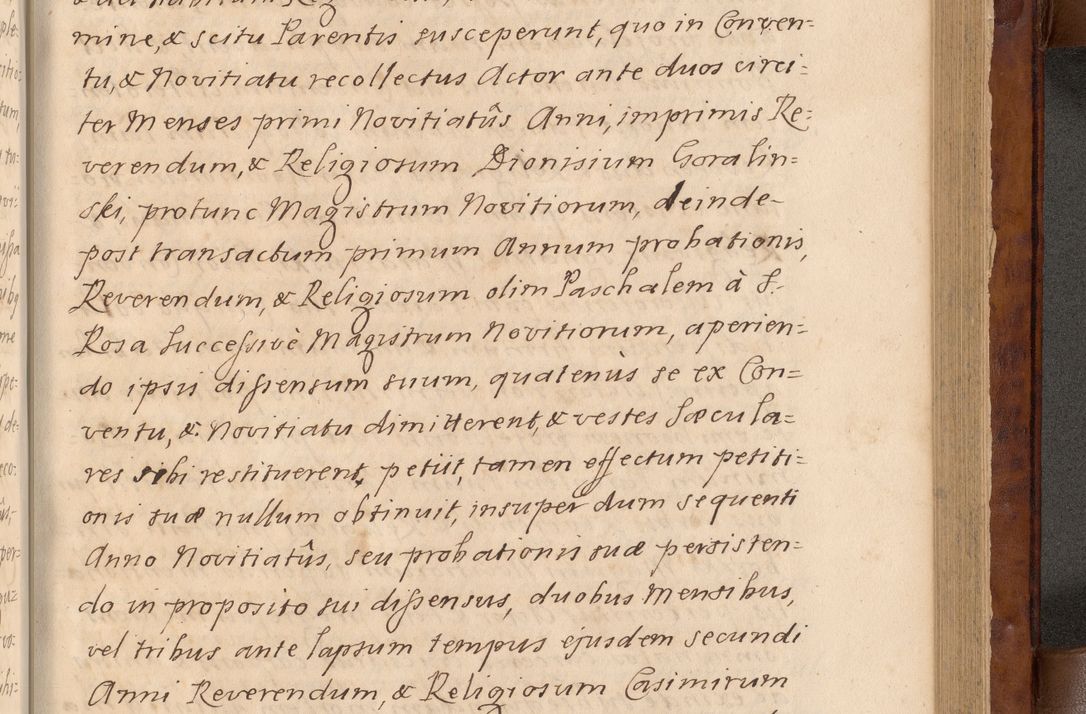 mine, & scitu Parentis susceperunt, quo in Conven=
tu, & Novitiatu recollectus Actor ante duos circi=
ter Menses primi Novitiatûs Anni, imprimis Re=
verendum, & Religiosum Dionisium Goralin=
ski, protunc Magistrum Novitiorum, deinde
post transactum primum Annum probationis,
Reverendum, & Religiosum olim Paschalem à S.
Rosa Successivè Magistrum Novitiorum, aperien=
do ipsis dissensum suum, quatenùs se ex Con=
ventu, & Novitiatu dimitterent, & vestes Sæcula=
res sibi restituerent, petiit, tamen effectum petiti=
onis suæ nullum obtinuit, insuper dum sequenti
Anno Novitiatûs, seu probationis suæ persisten=
do in proposito sui dissensus, duobus Mensibus,
vel tribus ante lapsum tempus ejusdem secundi
Anni Reverendum, & Religiosum Casimirum